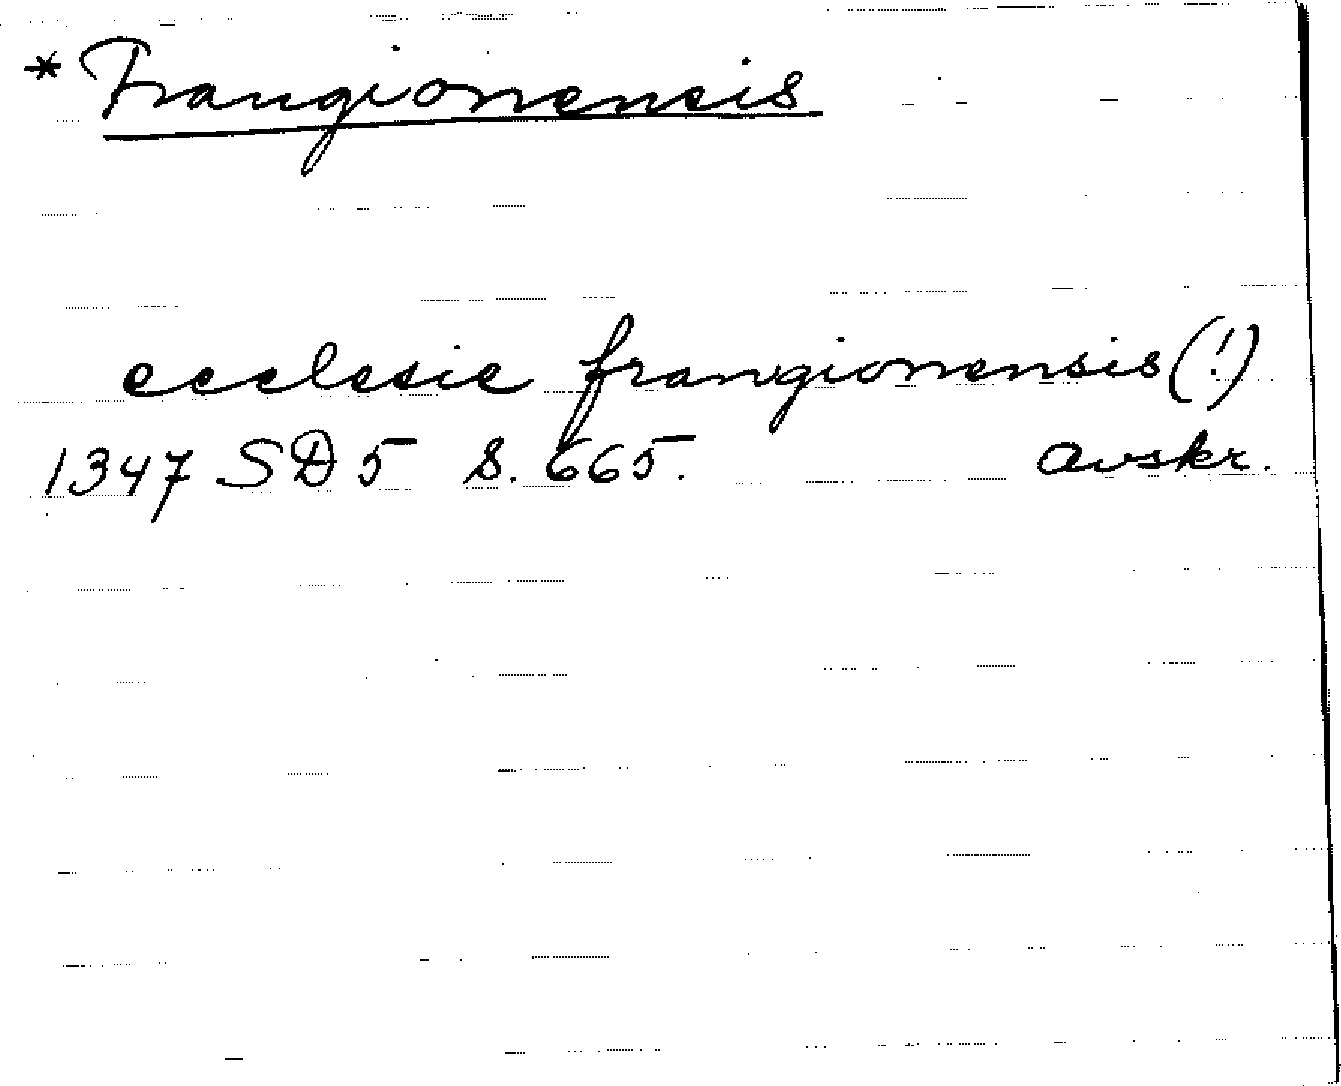 * Frangionensis
ecclesie frangionensis (!)
1347 SD 5 S. 665. avskr.